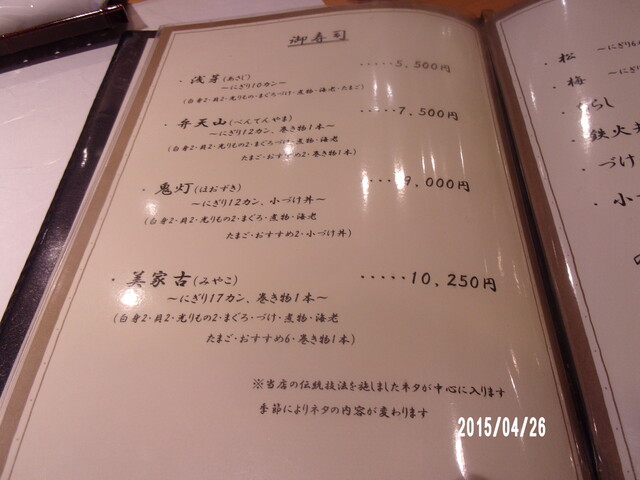 御寿司
・浅芽(あさじ) ・・・・・5,500円
〜にぎり10カン〜
(白身2・貝2・光りもの・まぐろづけ・煮物・海老・たまご)
・弁天山(べんてんやま) ・・・・・7,500円
〜にぎり12カン、巻き物1本〜
(白身2・貝2・光りもの2・まぐろづけ・煮物・海老
たまご・おすすめ2・巻き物1本)
・鬼灯(ほおずき) ・・・・・9,000円
〜にぎり12カン、小づけ丼〜
(白身2・貝2・光りもの2・まぐろ・煮物・海老
たまご・おすすめ2・小づけ丼)
・美家古(みやこ) ・・・・・10,250円
〜にぎり17カン、巻き物1本〜
(白身2・貝2・光りもの2・まぐろ・づけ・煮物・海老
たまご・おすすめ6・巻き物1本)
※当店の伝統技法を施しましたネタが中心に入ります
季節によりネタの内容が変わります
・松
〜にぎり6
・梅
〜にぎり
らし
・鉄火
・づけ
・小
2015/04/26